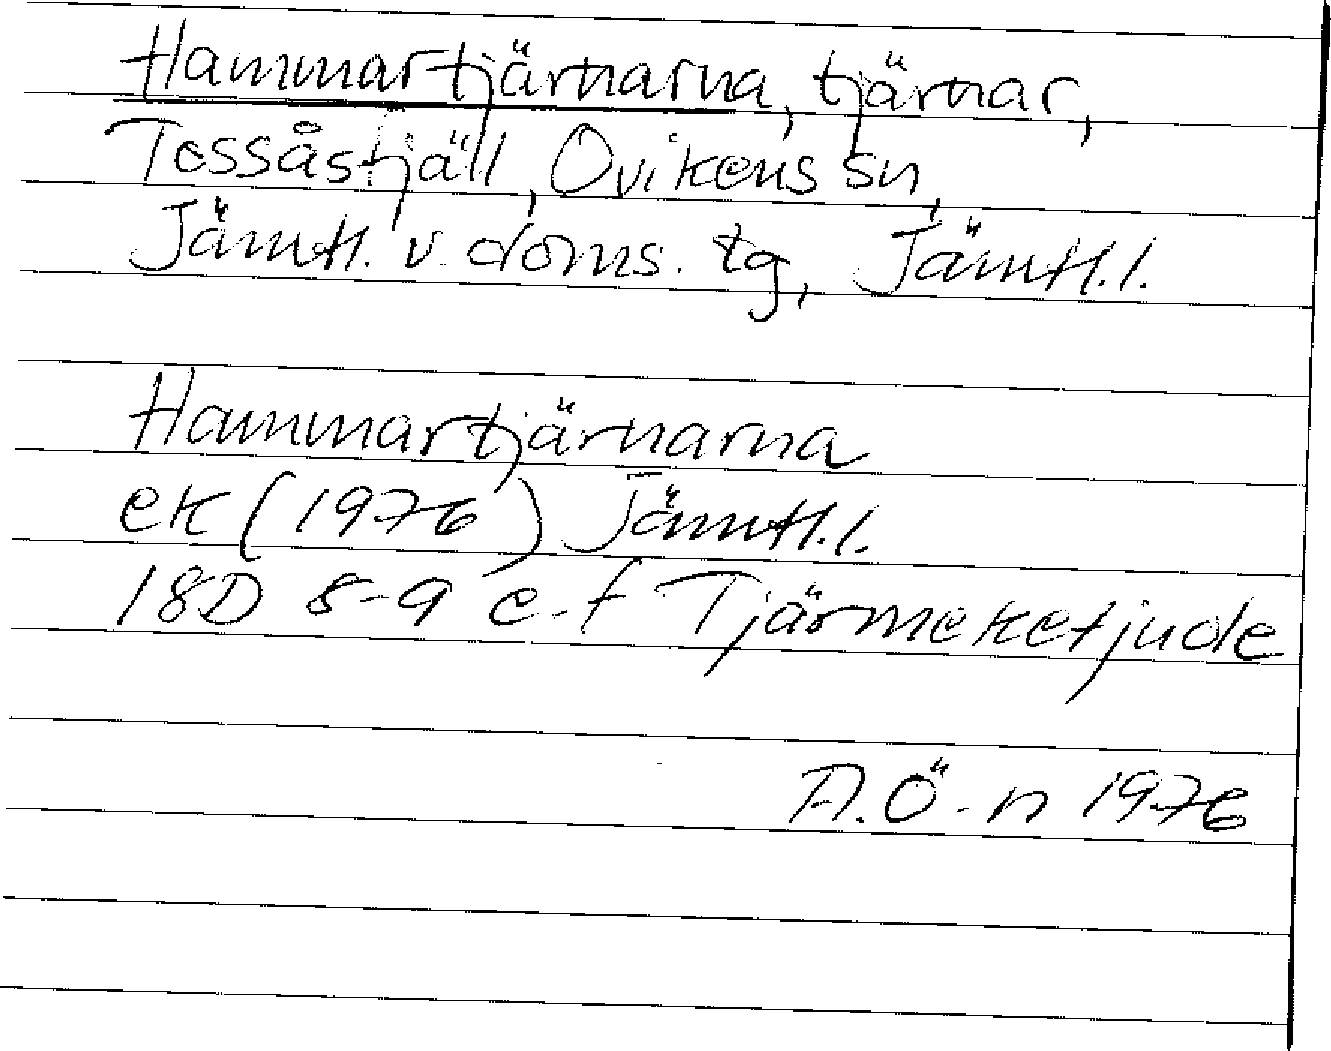 Hammartjärnarna, tjärnar,
Tossåsfjäll, Ovikens sn,
Jämtl. v. doms. tg, Jämtl.l.
Hammartjärnarna
ek (1976) Jämtl.l.
18D 8-9 e-f Tjärmeketjude
A.Ö-n 1976